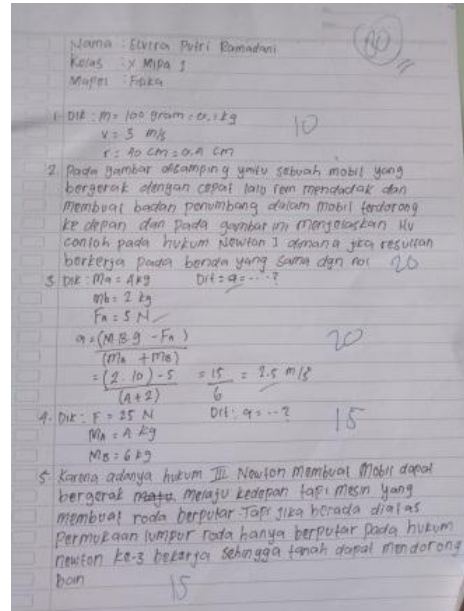 80
Nama : Elvira Putri Ramadani
Kelas : X MIPA 1
Mapel : Fisika
1. Dik : m = 100 gram = 0.1 kg
10
v = 5 m/s
r = 40 cm = 0.4 cm
2. Pada gambar disamping yaitu sebuah mobil yang
bergerak dengan cepat lalu rem mendadak dan
membuat badan penumbang dalam mobil terdorong
ke depan dan pada gambar ini menjelaskan Hu
contoh pada hukum Newton I dimana jika resultan
berkerja pada benda yang sama dgn nol 20
3. Dik : Ma = 4 kg Dit : a = ...?
mb = 2 kg
Fa = 5 N
a = (M B g - Fa)
20
(ma + mB)
= (2 . 10) - 5 = 15 = 2.5 m/s
(4 + 2) 6
4. Dik : F = 25 N Dit : a = ...?
15
MA = 4 kg
MB = 6 kg
5 Karena adanya hukum III Newton membuat mobil dapat
bergerak melaju kedepan tapi mesin yang
membuat roda berputar. Tapi jika berada diatas
permukaan lumpur roda hanya berputar pada hukum
newton ke-3 bekerja sehingga tanah dapat mendorong
ban
15